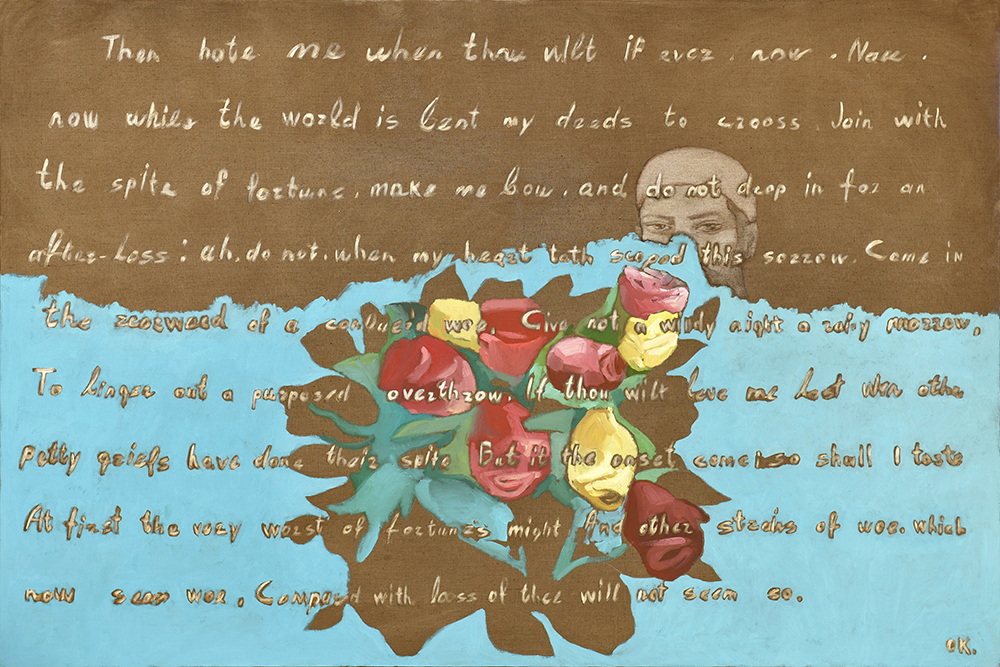 Then hate me when thou wilt if ever. now. Now.
now whies the world is bent my deeds to crooss. Join with
the spite of fortune. make me bow. and do not drop in for an
after-loss: ah. do not. when my heart hath scoped this sorrow. Come in
the rearward of a conquerd woe. Give not a windy night a rainy morrow,
To linger out a purposed overthrow. If thou wilt leve me last when othe
petty griefs have done their spite But it the onset come so shall I taste
At first the very worst of fortune's might And other strains of woe. which
now seem woe. Compared with loss of thee will not seem so.
OK.